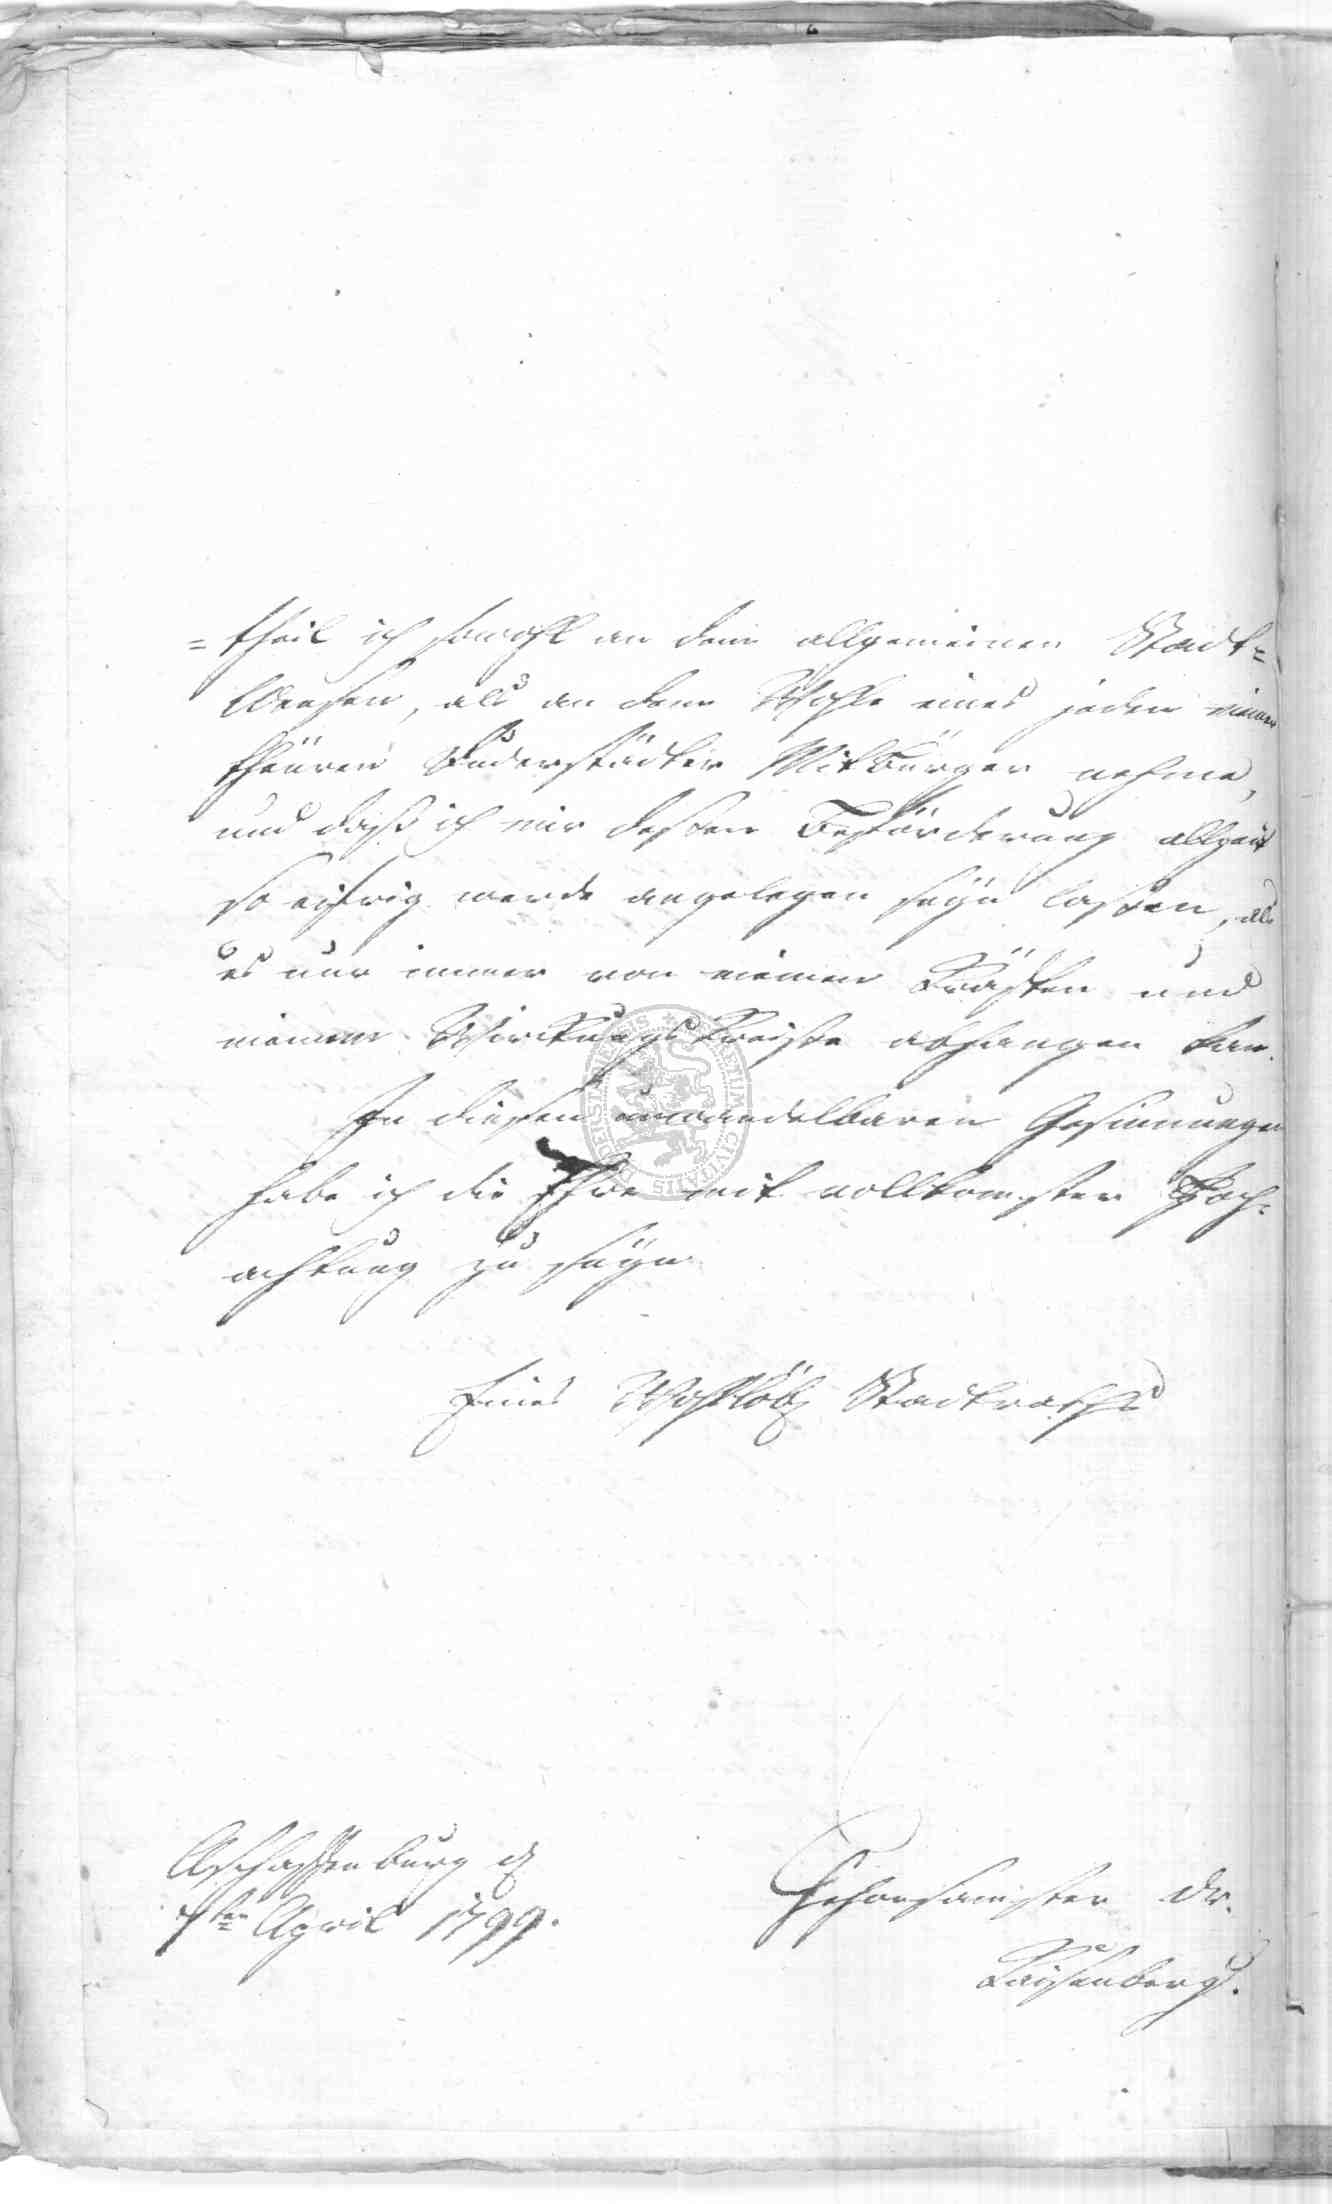 = theil ich sowohl an dem allgemeinen Stadt=
Weesen, als an dem Wohle eines jeden meiner
theüren Duderstädter Mitbürger nehme,
und daß ich mir dessen Beförderung allzeit
so eifrig werde angelegen seyn lassen, als
es nur immer von meinen Kräften und
meinem Wirkungskreise abhangen kan.
In diesen unwandelbaren Gesinnungen
habe ich die Ehre mit vollkomster Hoch=
achtung zu seyn
Eines Wohllöbl Stadtraths
Aschaffenburg d
7ten April 1799.
Gehorsamster Dr.
SIGILLUM SECRETUM CIVITATIS DUDERSTADIENSIS